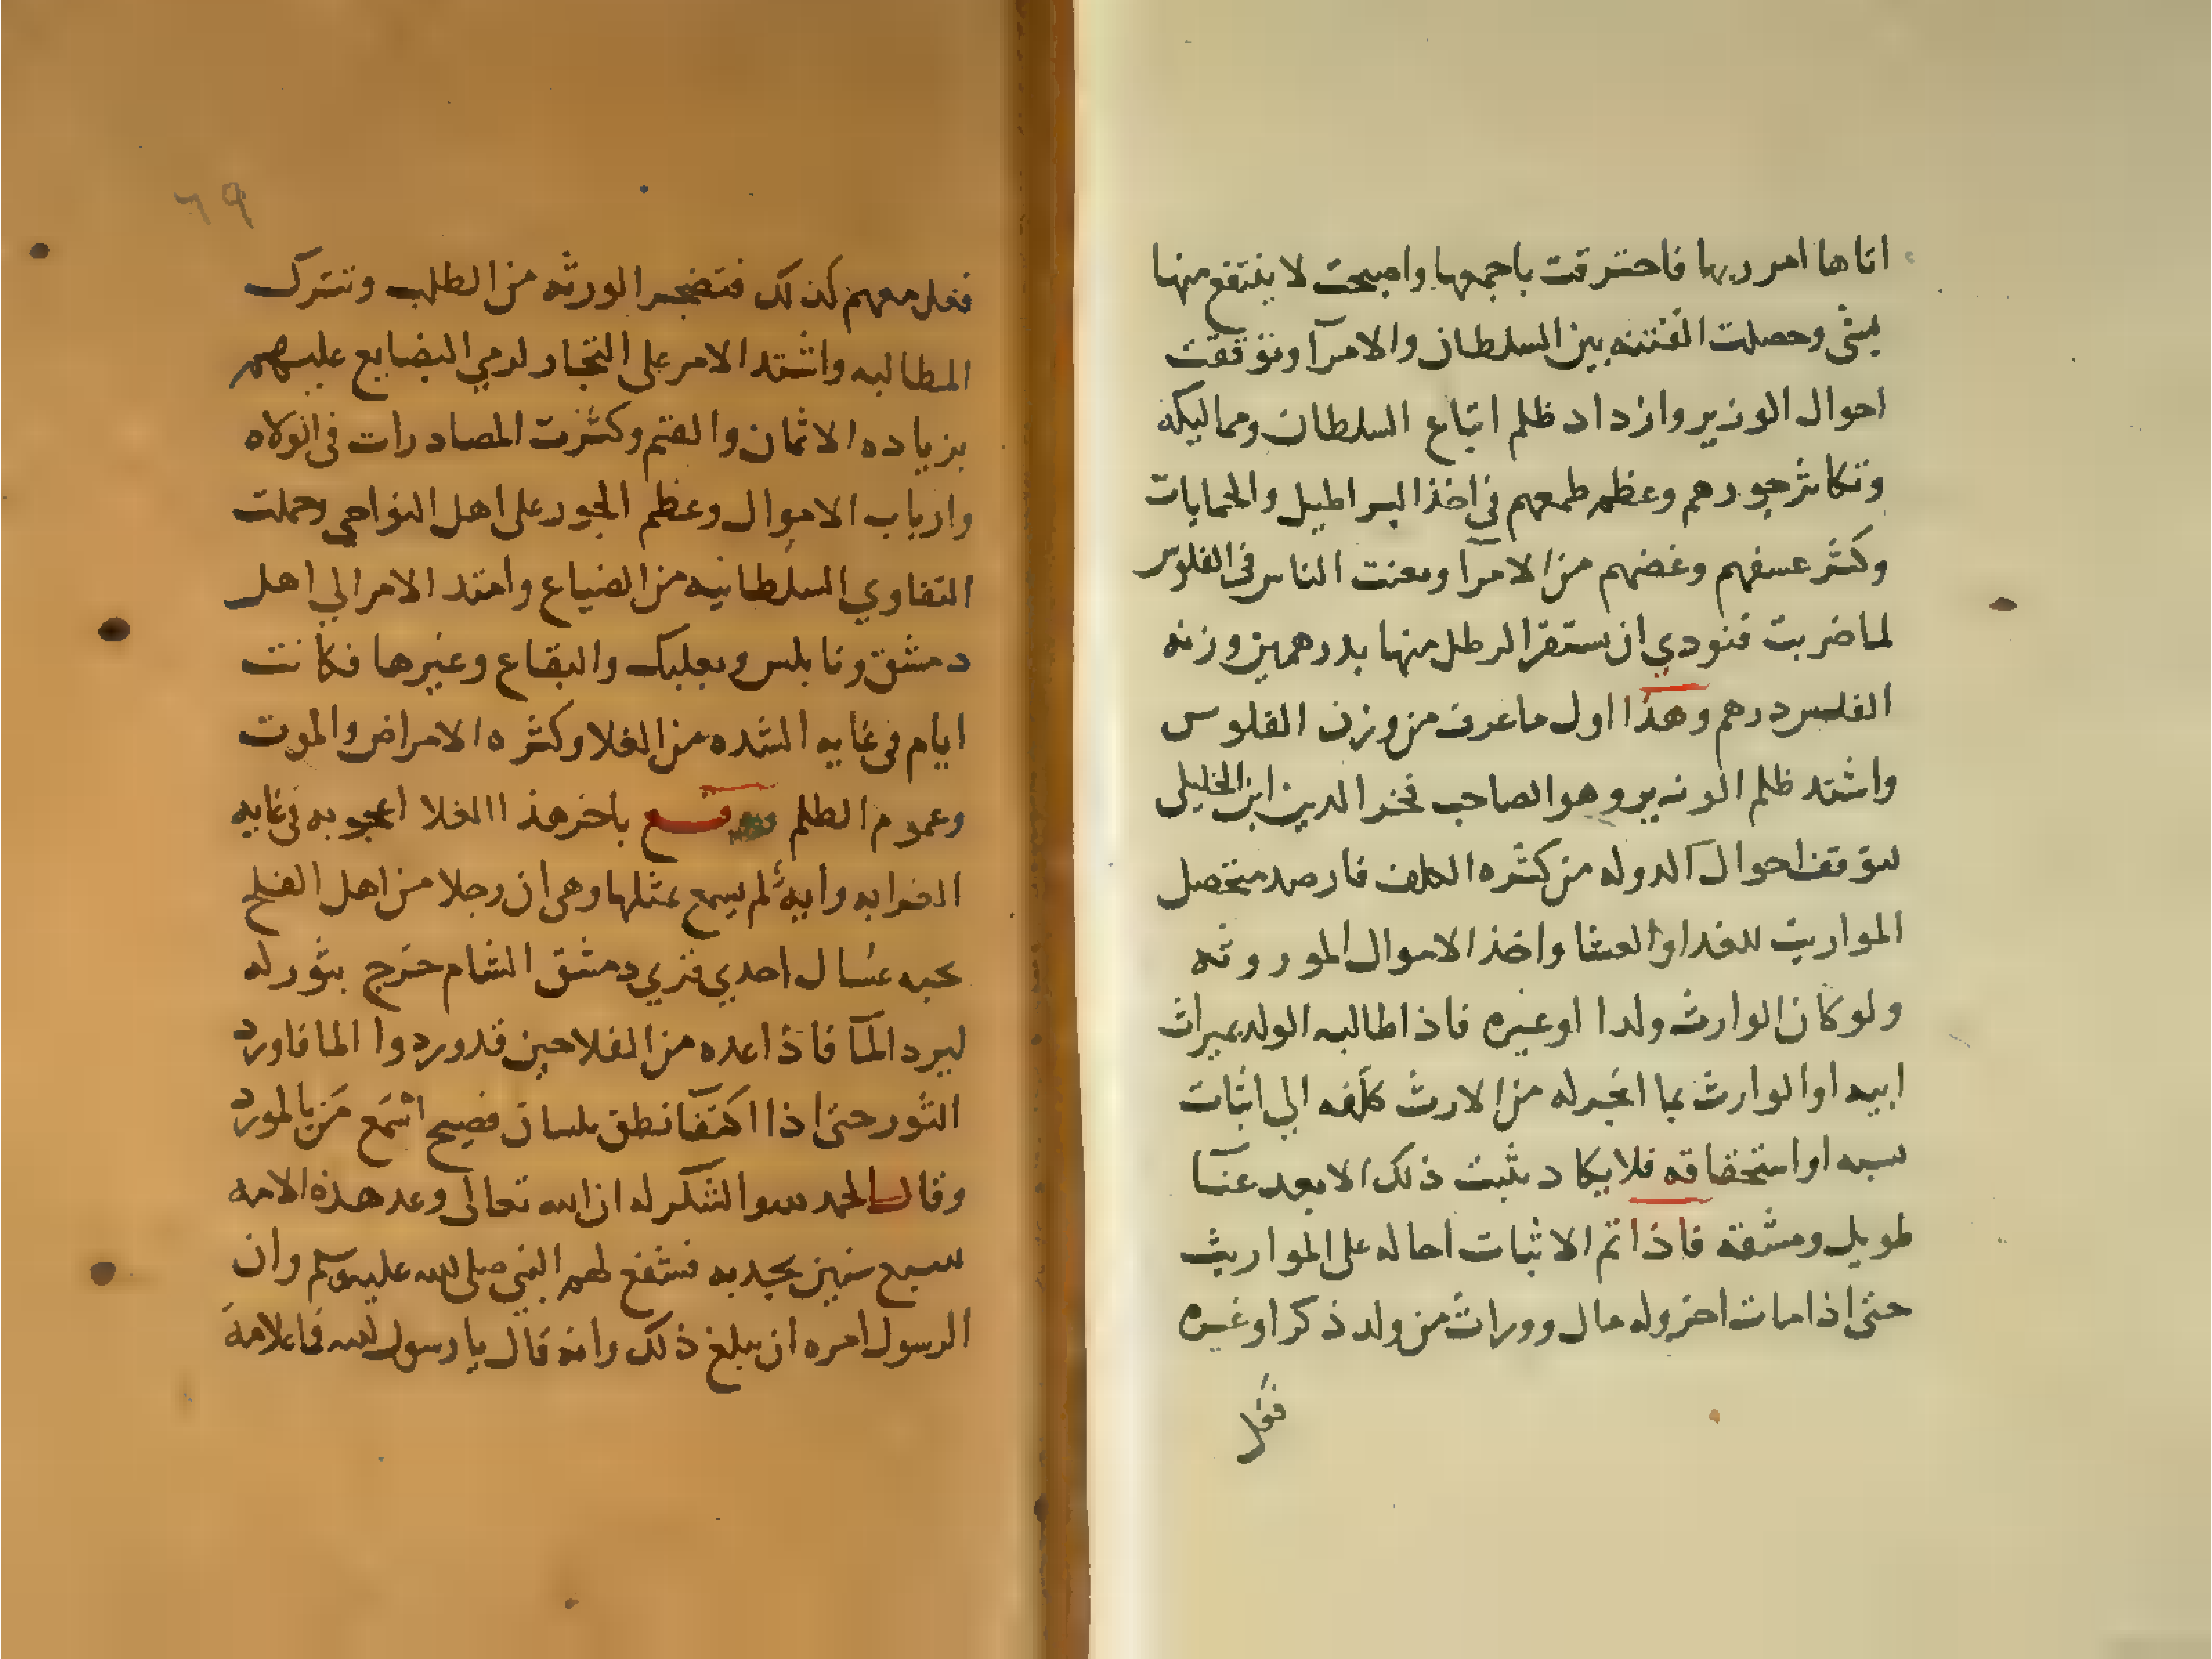 اتاها امر ربها فاحترقت باجمعها واصبحت لا ينتفع منها
بشى وحصلت الفتنه بين السلطان والامرآ وتوقفت
احوال الوزير وازداد ظلم اتباع السلطان ومماليكه
وتكاثر جورهم وعظم طمعهم فى اخذ البراطيل والحمايات
وكثر عسفهم وغضبهم من الامرآ وتعنت الناس فى الفلوس
لما ضربت فنودي ان يستقر الرطل منها بدرهمين وزنه
الفلس درهم وهذا اول ما عرف من وزن الفلوس
واشتد ظلم الوزير وهو الصاحب فخر الدين ابن الخليلى
لتوقف احوال الدوله من كثره الكلف فارصد متحصل
المواريث للغدا والعشا واخذ الاموال الموروثه
ولو كان الوارث ولدا او غيره فاذا طالبه الولد بميراث
ابيه او الوارث بما انجر له من الارث كلفه الى اثبات
نسبه او استحقاقه فلا يكاد يثبت ذلك الا بعد عنآ
طويل ومشقة فاذا تم الاثبات احاله على المواريث
حتى اذا مات اخر وله مال ووراث من ولد ذكر او غيره
ففعل
٦٩
ففعل معهم كذلك فتضجر الورثه من الطلب وتترك
المطالبه واشتد الامر على التجار لرمي البضايع عليهم
بزياده الاثمان والقيم وكثرت المصادرات فى الولاه
وارباب الاموال وعظم الجور على اهل النواحى وحملت
التقاوي السلطانيه من الضياع وامتد الامر الي اهل
دمشق ونابلس وبعلبك والبقاع وغيرها فكانت
ايام فى غايه الشده من الغلا وكثره الامراض والموت
وعموم الظلم ووقع باخر هذا الغلا اعجوبه فى غايه
الغرابه وايه لم يسمع بمثلها وهى ان رجلا من اهل الفلح
بجبه عسال احدي قري دمشق الشام خرج بثور له
ليرد المآ فاذا عده من الفلاحين قد وردوا الما فاورد
الثور حتى اذا اكتفا نطق بلسان فصيح اسمع من بالمورد
وقال الحمد لله والشكر له ان الله تعالى وعد هذه الامه
سبع سنين مجدبه فشفع لهم النبى صلى الله عليه وسلم وان
الرسول امره ان يبلغ ذلك وانه قال يا رسول الله فما علامة